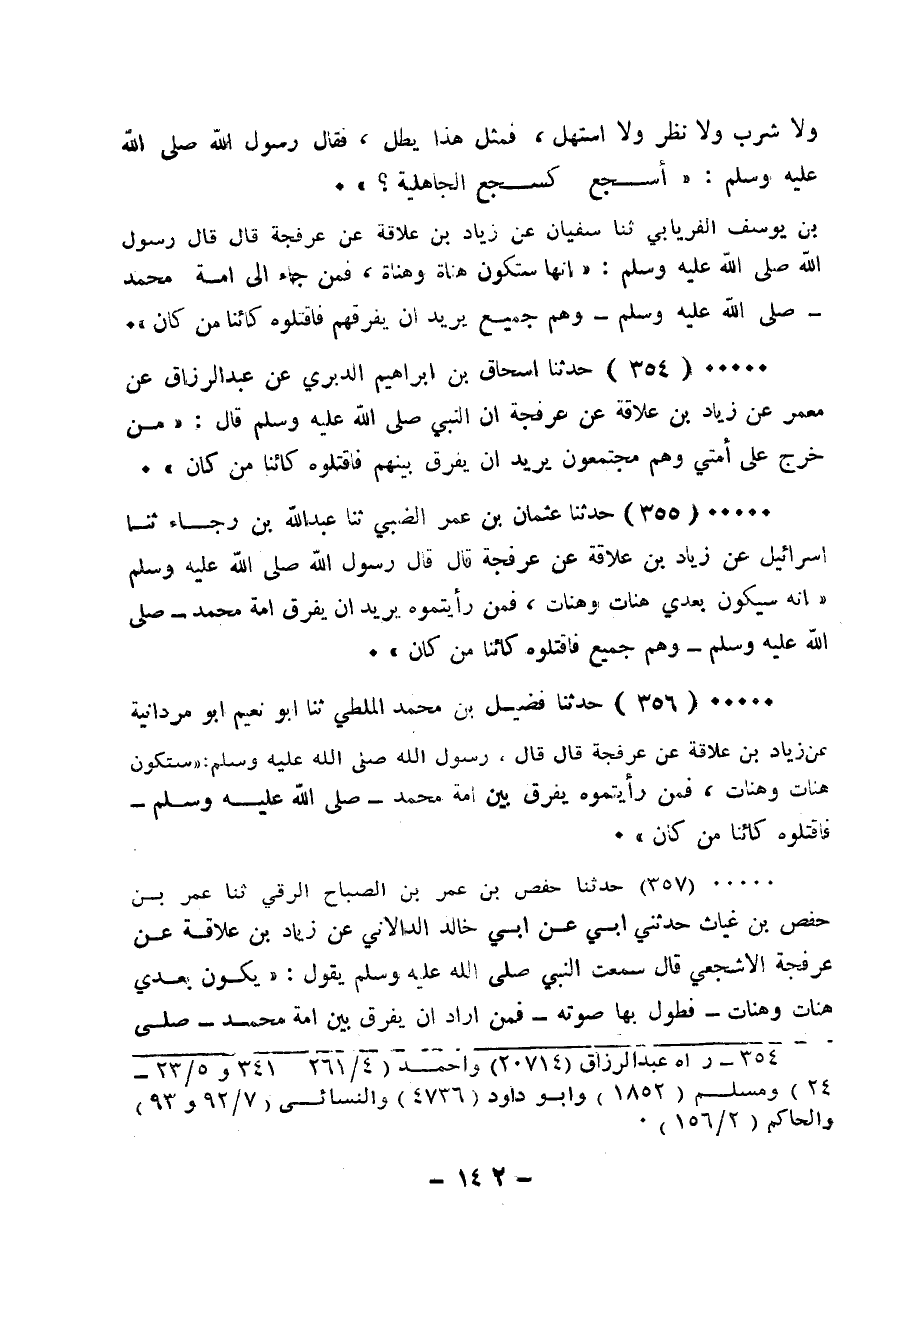 ولا شرب ولا نظر ولا استهل ، فمثل هذا يطل ، فقال رسول الله صلى الله
عليه وسلم : « أسجع كسجع الجاهلية ؟ » ٠
بن يوسف الفريابي ثنا سفيان عن زياد بن علاقة عن عرفجة قال قال رسول
الله صلى الله عليه وسلم : « انها ستكون هناة وهناة ، فمن جاء الى امة محمد
ـ صلى الله عليه وسلم ـ وهم جميع يريد ان يفرقهم فاقتلوه كائنا من كان »٠
٠٠٠٠٠ ( ٣٥٤ ) حدثنا اسحاق بن ابراهيم الدبري عن عبدالرزاق عن
معمر عن زياد بن علاقة عن عرفجة ان النبي صلى الله عليه وسلم قال : « من
خرج على أمتي وهم مجتمعون يريد ان يفرق بينهم فاقتلوه كائنا من كان » ٠
٠٠٠٠٠ ( ٣٥٥ ) حدثنا عثمان بن عمر الضبي ثنا عبدالله بن رجاء ثنا
اسرائيل عن زياد بن علاقة عن عرفجة قال قال رسول الله صلى الله عليه وسلم
« انه سيكون بعدي هنات وهنات ، فمن رأيتموه يريد ان يفرق امة محمد ـ صلى
الله عليه وسلم ـ وهم جميع فاقتلوه كائنا من كان » ٠
٠٠٠٠٠ ( ٣٥٦ ) حدثنا فضيل بن محمد الملطي ثنا ابو نعيم ابو مردانية
عن زياد بن علاقة عن عرفجة قال قال ، رسول الله صلى الله عليه وسلم:«ستكون
هنات وهنات ، فمن رأيتموه يفرق بين امة محمد ـ صلى الله عليه وسلم ـ
فاقتلوه كائنا من كان » ٠
٠٠٠٠٠ (٣٥٧) حدثنا حفص بن عمر بن الصباح الرقي ثنا عمر بن
حفص بن غياث حدثني ابي عن ابي خالد الدالاني عن زياد بن علاقة عن
عرفجة الاشجعي قال سمعت النبي صلى الله عليه وسلم يقول : « يكون بعدي
هنات وهنات ـ فطول بها صوته ـ فمن اراد ان يفرق بين امة محمد ـ صلى
٣٥٤ ـ ر اه عبدالرزاق (٢٠٧١٤) واحمد ( ٢٦١/٤ ٣٤١ و ٢٣/٥ ـ
٢٤ ) ومسلم ( ١٨٥٢ ) وابو داود ( ٤٧٣٦ ) والنسائي ( ٩٢/٧ و ٩٣ )
والحاكم ( ١٥٦/٢ ) ٠
ـ ١٤٢ ـ